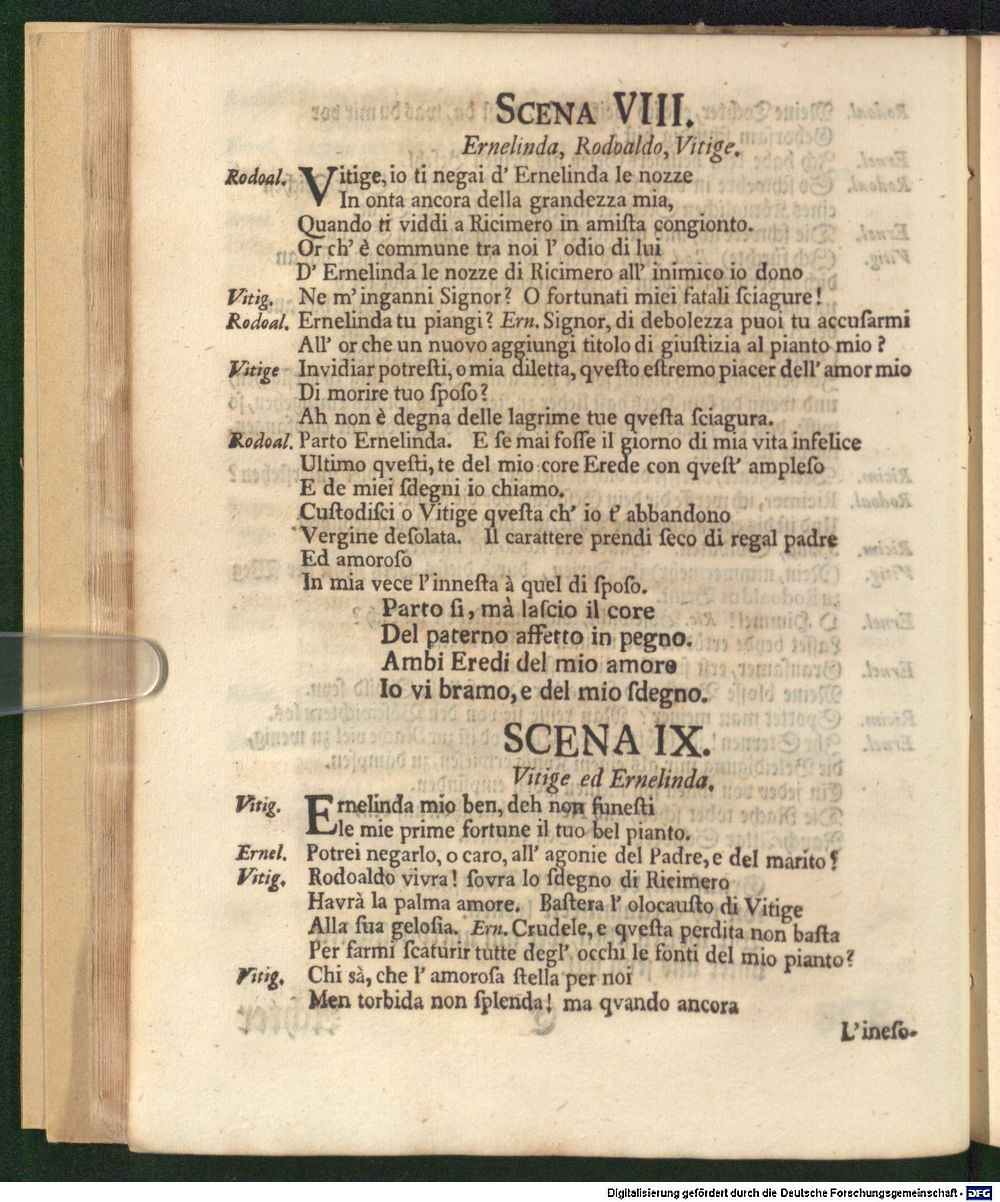 SCENA VIII.
Ernelinda, Rodoaldo, Vitige.
Rodoal. Vitige, io ti negai d' Ernelinda le nozze
In onta ancora della grandezza mia,
Quando ti viddi a Ricimero in amiſta congionto.
Or ch' è commune tra noi l' odio di lui
D' Ernelinda le nozze di Ricimero all' inimico io dono
Vitig. Ne m' inganni Signor? O fortunati miei fatali ſciagure!
Rodoal. Ernelinda tu piangi? Ern. Signor, di debolezza puoi tu accuſarmi
All' or che un nuovo aggiungi titolo di giuſtizia al pianto mio?
Vitige Invidiar potreſti, o mia diletta, qveſto eſtremo piacer dell' amor mio
Di morire tuo ſpoſo?
Ah non è degna delle lagrime tue qveſta ſciagura.
Rodoal. Parto Ernelinda. E ſe mai foſſe il giorno di mia vita infelice
Ultimo qveſti, te del mio core Erede con qveſt' ampleſo
E de miei ſdegni io chiamo.
Cuſtodiſci o Vitige qveſta ch' io t' abbandono
Vergine deſolata. Il carattere prendi ſeco di regal padre
Ed amoroſo
In mia vece l' inneſta à quel di ſpoſo.
Parto ſi, mà laſcio il core
Del paterno affetto in pegno.
Ambi Eredi del mio amore
Io vi bramo, e del mio ſdegno.
SCENA IX.
Vitige ed Ernelinda.
Vitig. Ernelinda mio ben, deh non funeſti
le mie prime fortune il tuo bel pianto.
Ernel. Potrei negarlo, o caro, all' agonie del Padre, e del marito?
Vitig. Rodoaldo vivra! ſovra lo ſdegno di Ricimero
Havrà la palma amore. Baſtera l' olocauſto di Vitige
Alla ſua geloſia. Ern. Crudele, e qveſta perdita non baſta
Per farmi ſcaturir tutte degl' occhi le fonti del mio pianto?
Vitig. Chi sà, che l' amoroſa ſtella per noi
Men torbida non ſplenda! ma qvando ancora
L' ineſo-
Digitalisierung gefördert durch die Deutsche Forschungsgemeinschaft - DFG